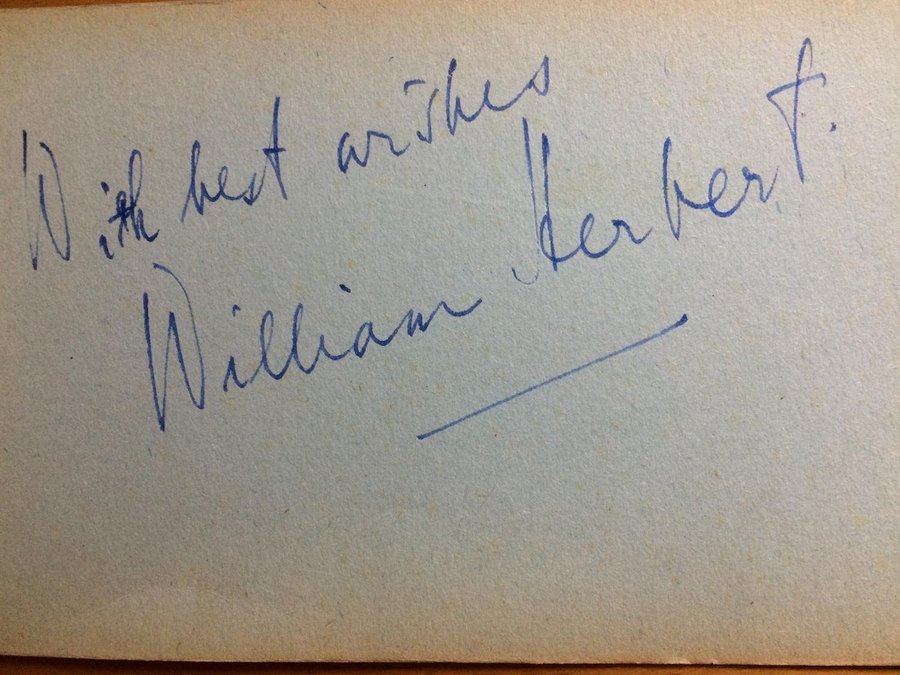 With best wishes
William Herbert.